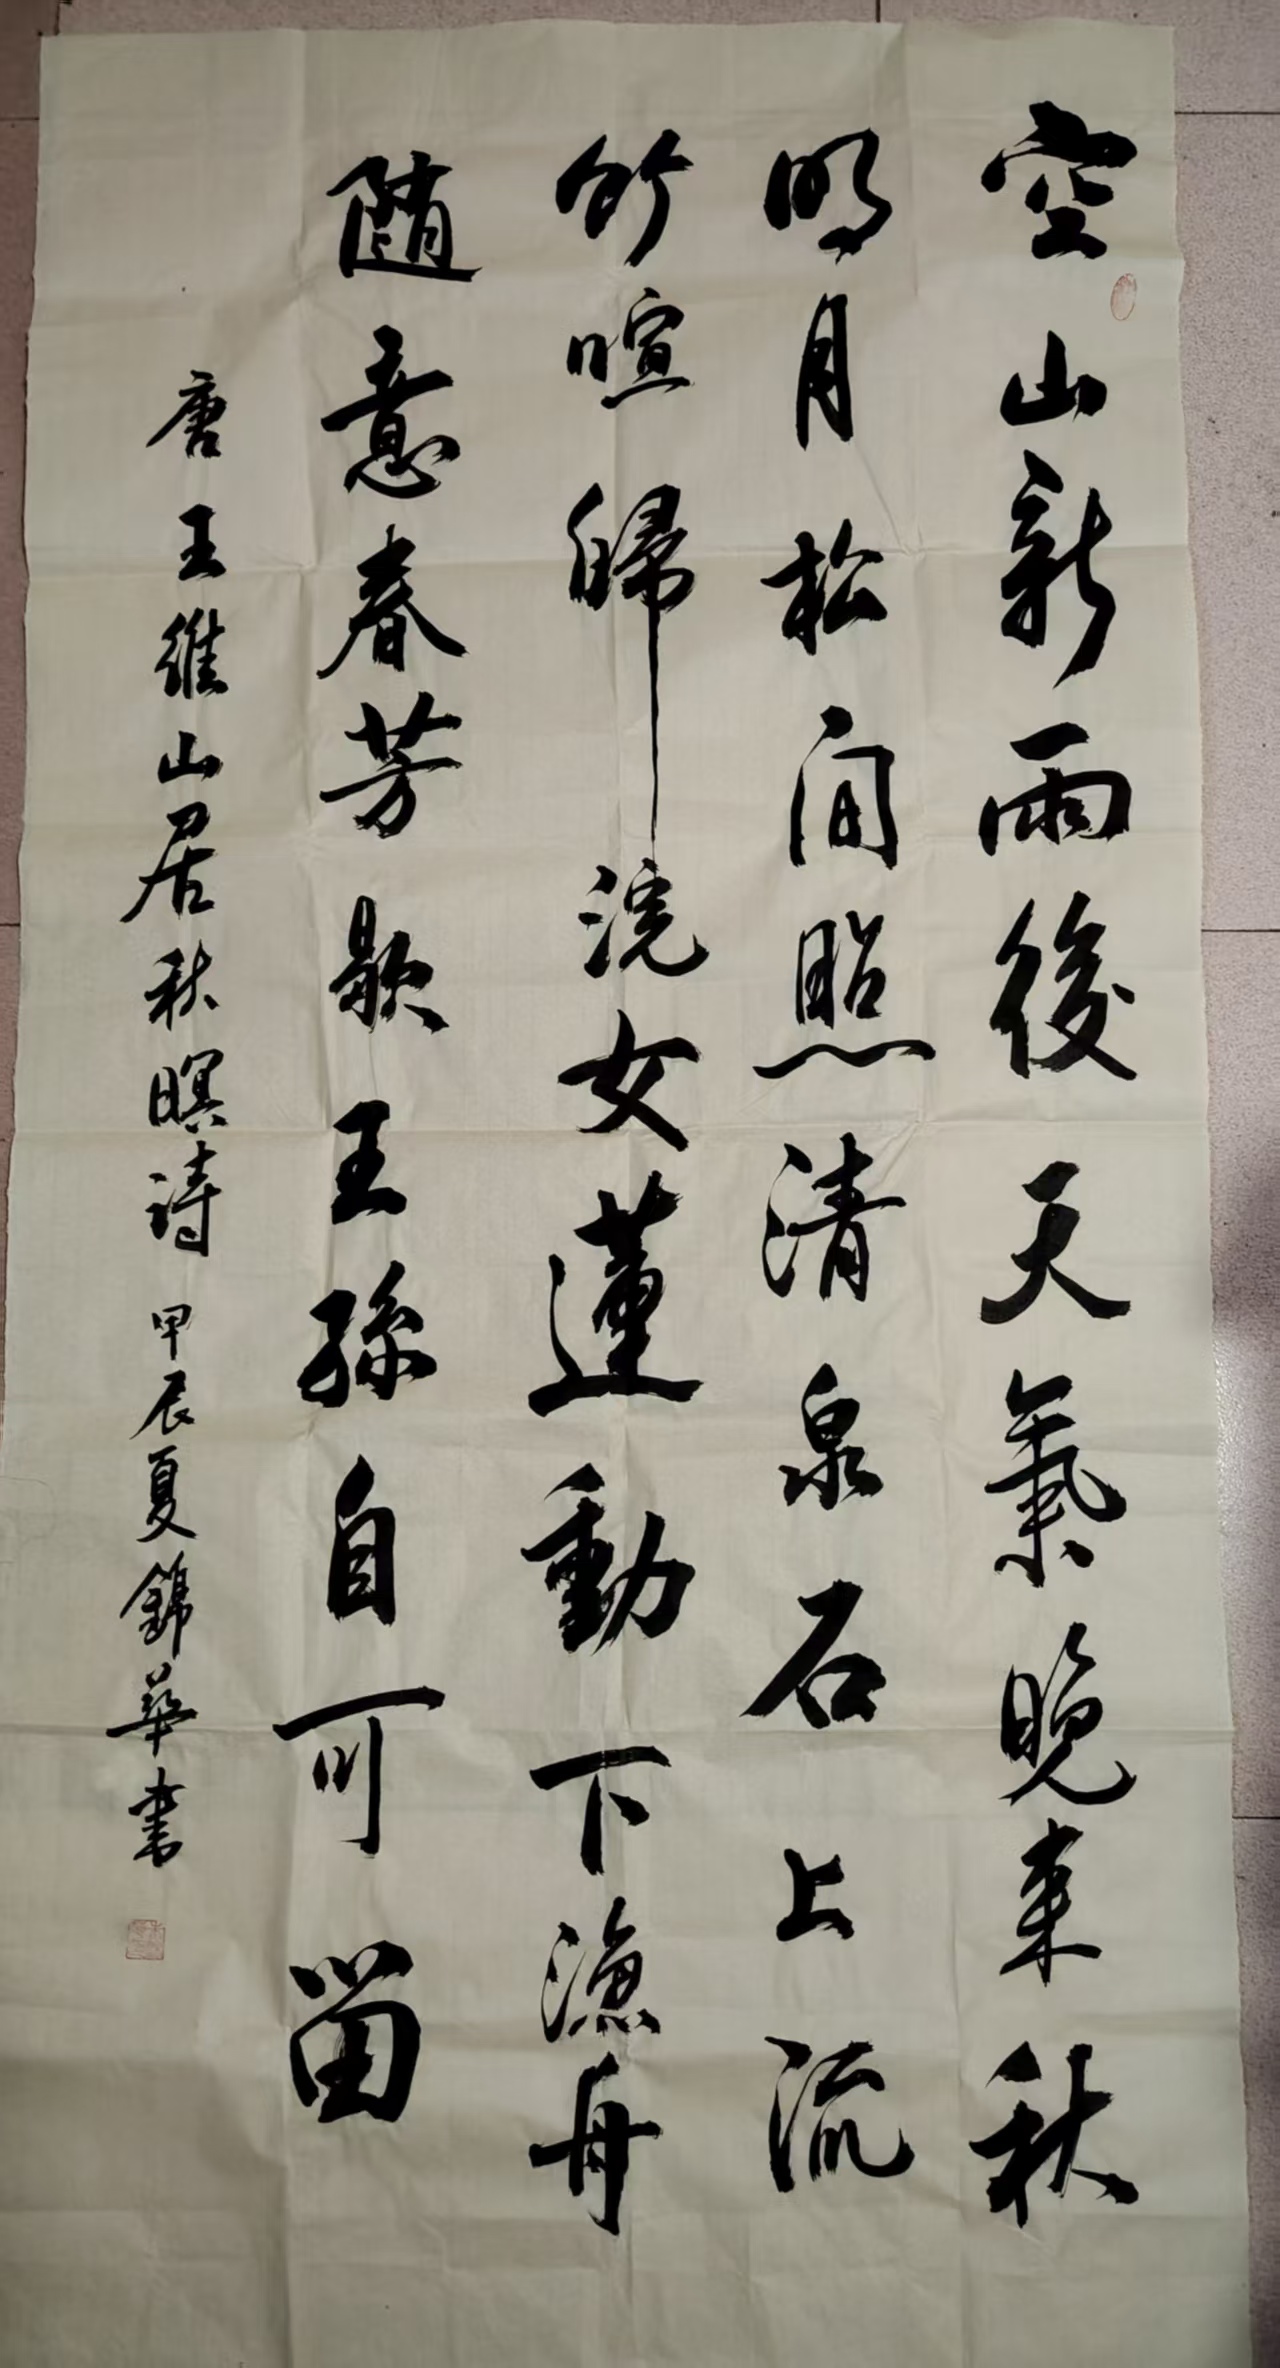 空山新雨後天氣晚来秋
明月松间照清泉石上流
竹喧歸浣女蓮動下漁舟
随意春芳歇王孫自可留
唐王維山居秋暝詩甲辰夏錦華书